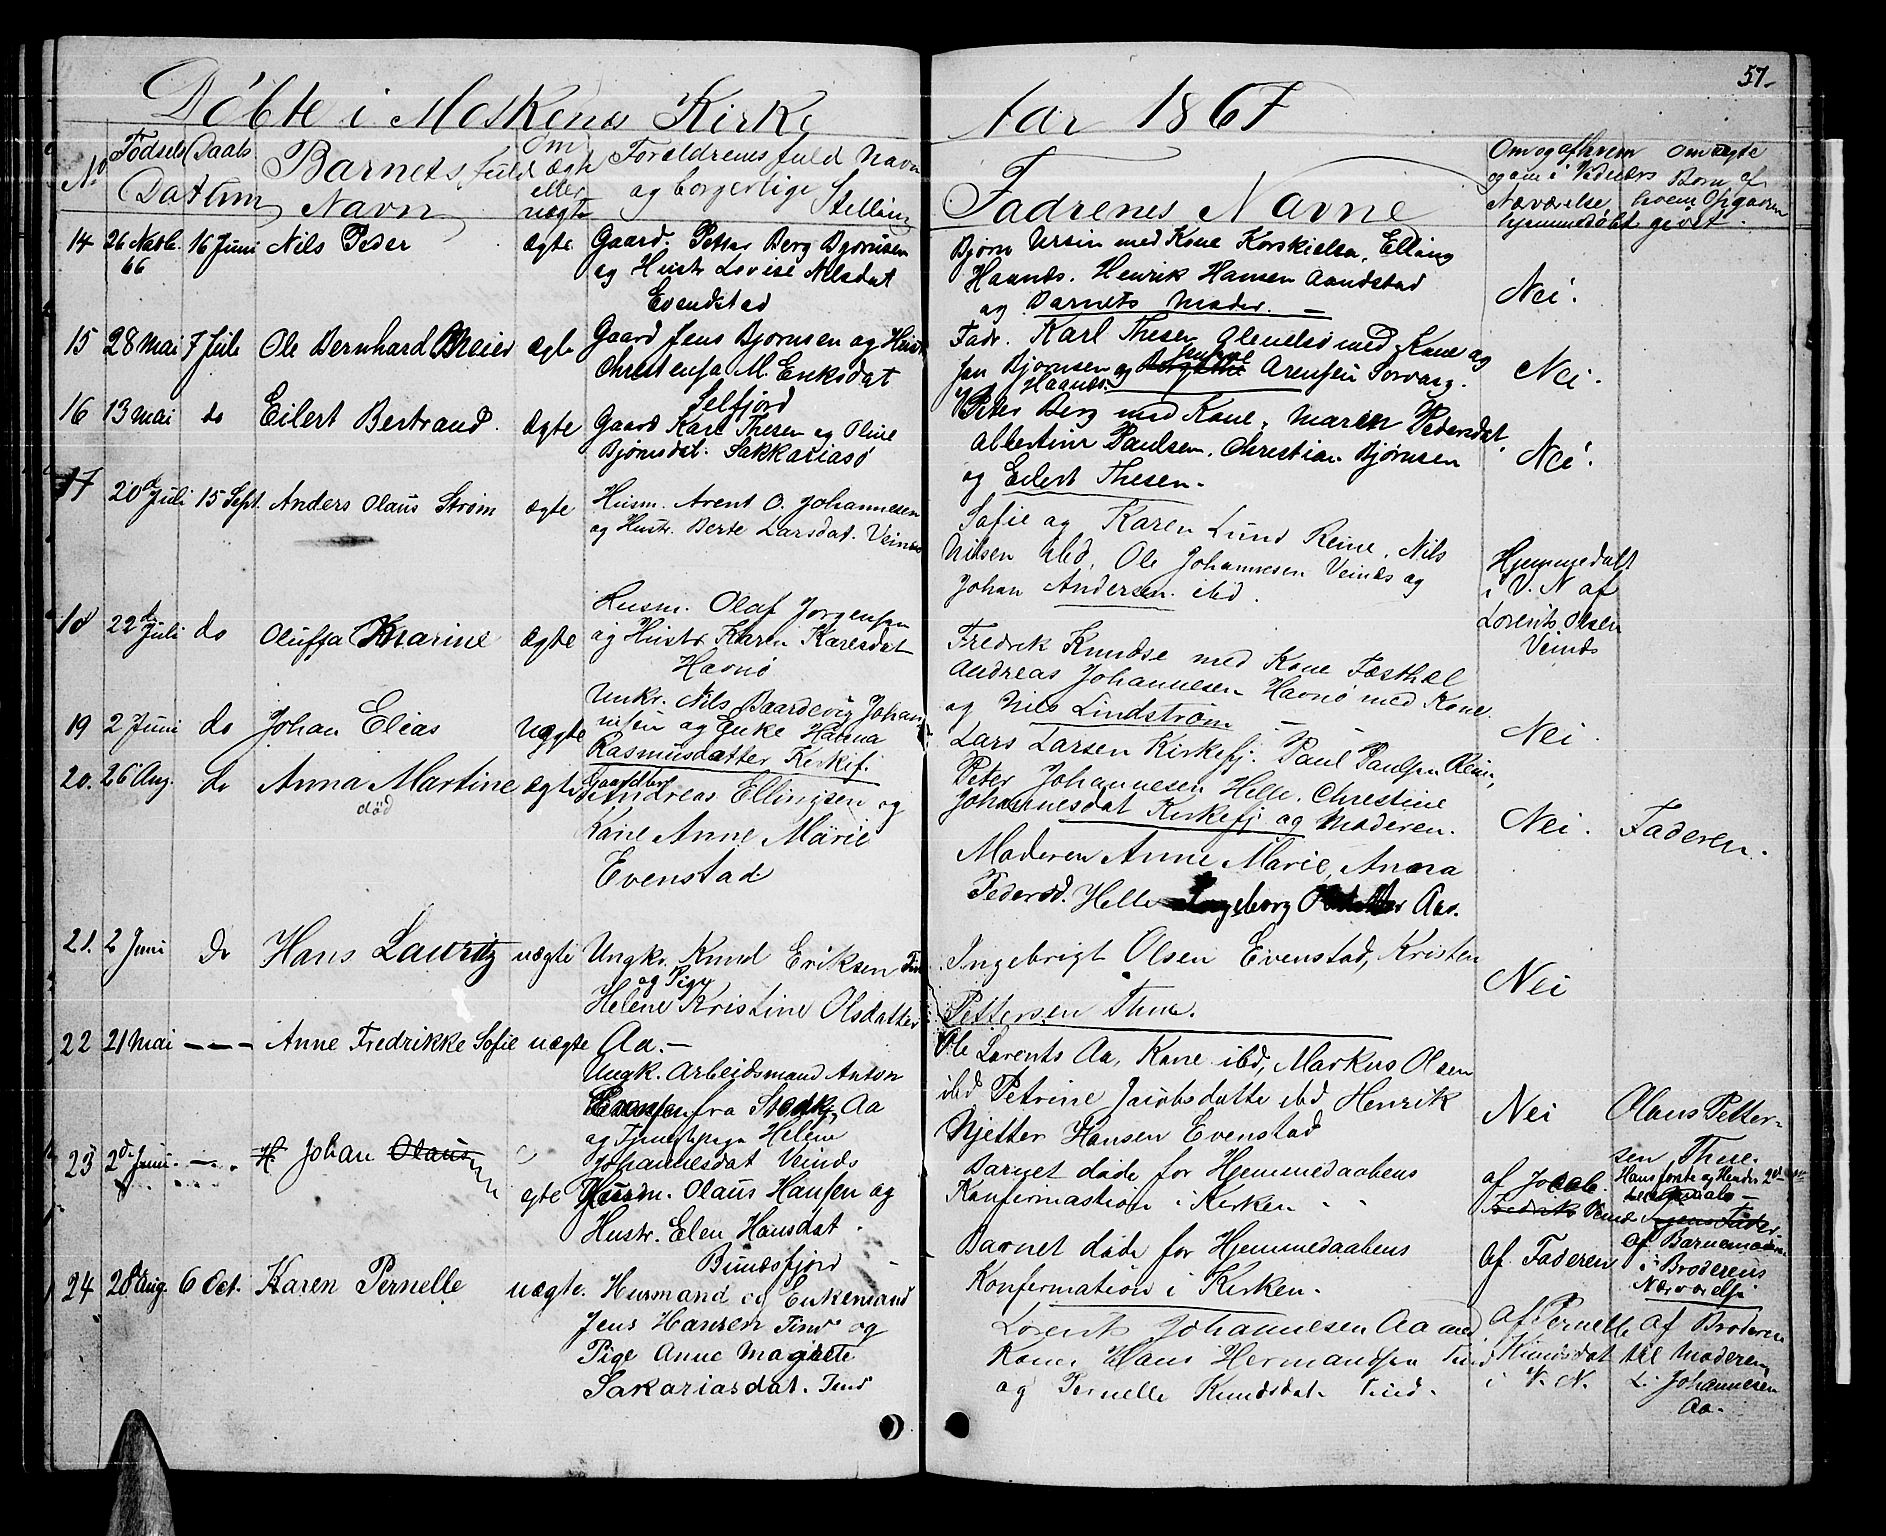 57-
Döbte i Moskenes Kirke
Aar 1867
No Födsels Daabs Datum
Barnets fuld Navn
Om ægte eller uægte
Forældrenes fuld Navn og borgerlige Stelling
Fadrenes Navne
Om og af hvem og om i Vidners Nærværelse hjemmedøbt
Om uægte Born af hvem Opgaven givet.
14 26 Novb. 66 16 Juni Nils Peder ægte Gaard. Petter Berg Bjørnsen
og Hustr Lovise Nilsdat
Evendstad
Bjørn Ursin med Kone Korskielsn, Elling
Haands. Henrik Hansen Aandstad
og Barnets Moder. —
Nei.
15 28 Mai 7 Juli Ole Bernhard Meier ægte Gaard Jens Bjørnsen og Hustr
Christensa M. Eriksdat
Selfjord
Fadr. Karl Thesen Olenilsø med Kone og
Jan Bjørnsen og Arensen Sorvaag.
Nei.
16 13 Mai do Eilert Bertrand. ægte Gaard Karl Thesen og Oline
Bjørnsdat. Sakkariasø
Peter Berg med Kone, Maren Pedersdat.
Albertine Paulsen. Christian Bjørnsen
og Eilert Thesen.
Nei.
17 20d Juli 15 Sept. Anders Olaus Strøm ægte Husm. Arent O. Johannesen
og Hustr. Berte Larsdat. Veines
Sofie og Karen Lund Reine, Nils
Nilsen ibd, Ole Johannesen Veines og
Johan Andersen ibd.
Hjemmedøbt
i V. N af
Lorents Olsen
Veines
18 22d Juli do Oluffa Marine ægte Husm. Olaf Jorgensen
og Hustr Karen Karlsdat
Havnø
Fredrik Knudse med Kone Festhæl
Andreas Johannesen Havnø med Kone.
og Nils Lindstrøm —
Nei.
19 2 Juni do Johan Elias Uægte Unkr. Nils Baardevig Johan
nesen og Enke Hanna
Rasmusdatter Kirkefj.
Lars Larsen Kirkefj. Paul Paulsen Olen,
Peter Johannesen Helle. Christine
Johannesdat Kirkefj og Moderen.
Nei. Faderen.
20. 26 Aug. do Anna Martine ægte
død
Gaardbr
Andreas Ellingsen og
Kone Anne Marie
Evenstad
Moderen Anne Marie, Anna
Pedersd. Helle Ingeborg Aas.
21. 2 Juni do Hans Lauritz uægte Ungkr. Knud Eriksen Tin
og Pige
Helene Kristine Olsdatter
Aa.—
Ingebrigt Olsen Evenstad, Kristen
Pettersen Thue.
Nei
22 21 Mai --- Anne Fredrikke Sofie uægte
Ungk. Arbeidsmand Anton
fra Aa
og Tjenestepige Helene
Johannesdat Veines
Ole Lorents Aa, Kone ibd, Markus Olsen
ibd Petrine Jacobsdatte ibd Henrik
Hansen Evenstad
Nei Olaus Petter-
sen, Thue.
23 2d Juni. —. H. Johan Olausen ægte Husm. Olaus Hansen og
Hustr. Elen Hansdat.
Bunesfjord
Barnet døde for Hjemmedaabens
Konfirmastion i Kirken
af Jacob
Fredrik Veines
Barnet døde for Hjemmedaabens
Konfermation i Kirken.
af Faderen
af Barnemoderen
i Broderens
Nærværelse
24 28 Aug. 6 Oct. Karen Pernelle uægte. Husmand og Enkemand
Jens Hansen Tind og
Pige Anne Magrete
Sakariasdat. Tind
Lorents Johannesen Aa med
Kone, Hans Hermandsen Tind
og Pernelle Knudsdat Tind.
af Pernelle
Knudsdat
i V. N.
af Broderen
til Moderen
L. Johannesen
Aa.